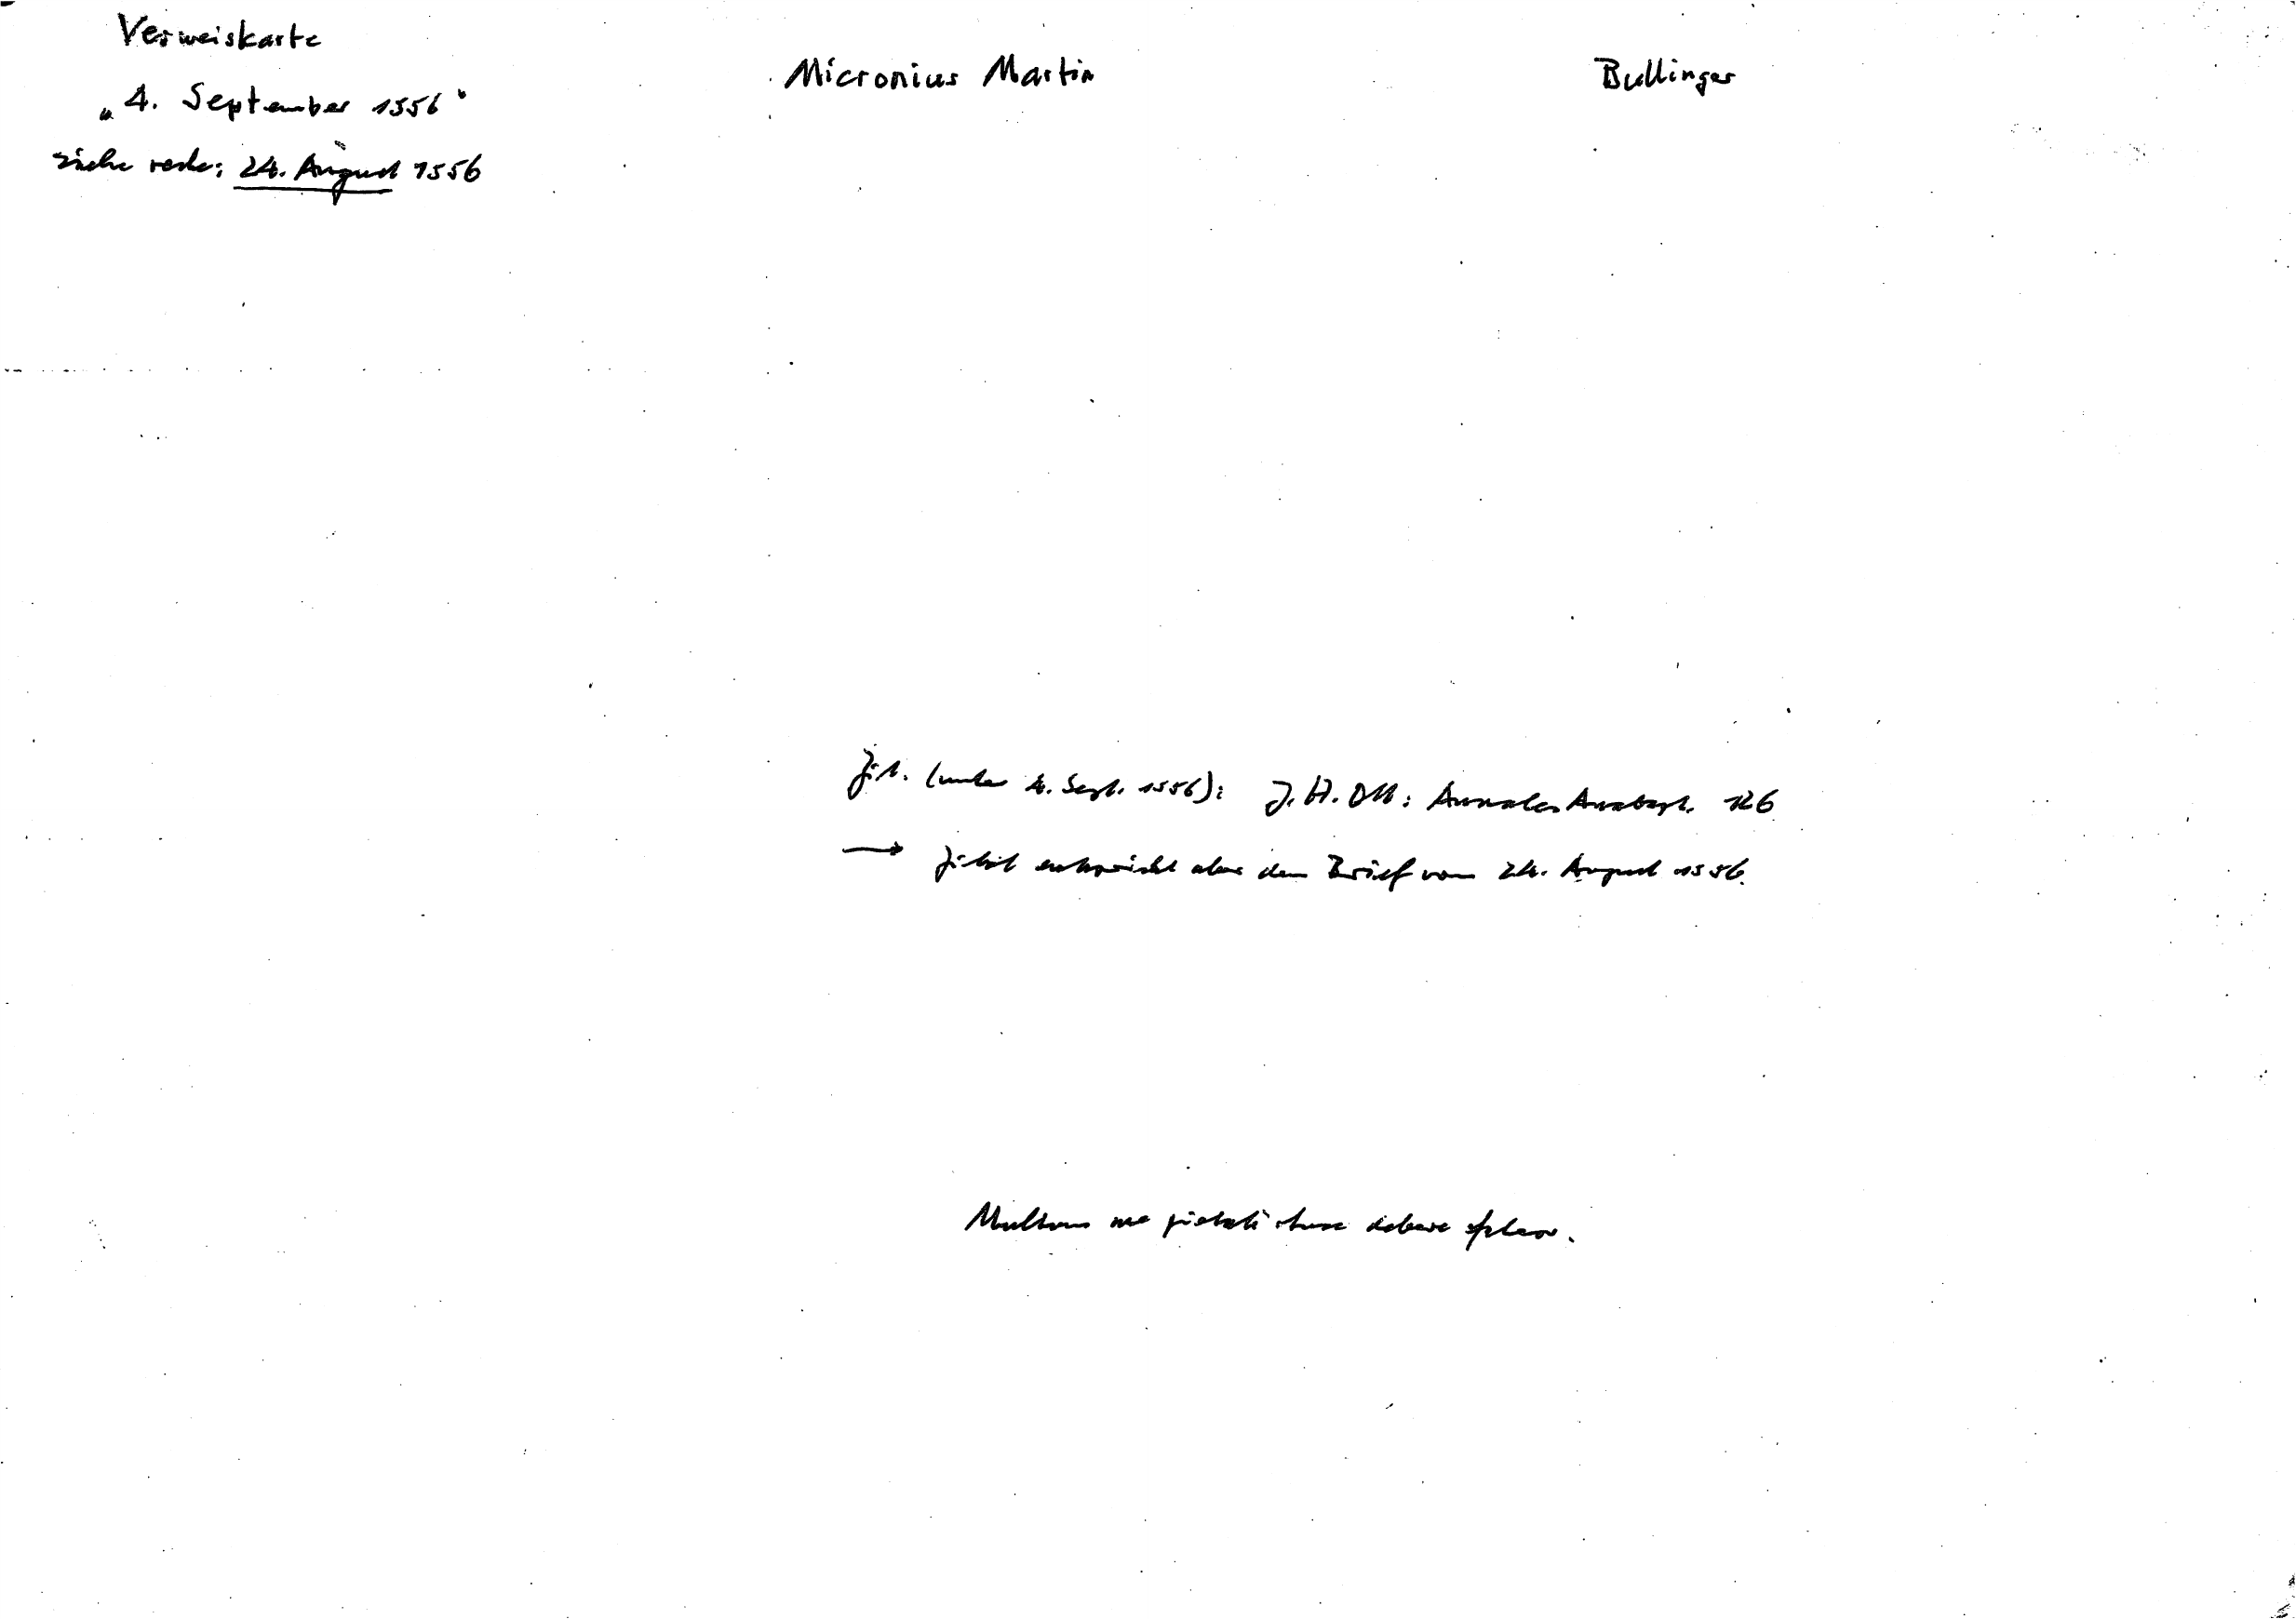 Verweiskarte
„4. September 1556“
siehe rede: 24. August 1556
Micronius Martin
Bullinger
Zit. (unter 4. Sept. 1556): J. H. Ott: Annales Anabapt. 126
→ Zitat entspricht aber dem Brief vom 24. August 1556.
Multum me pietati tuae debere